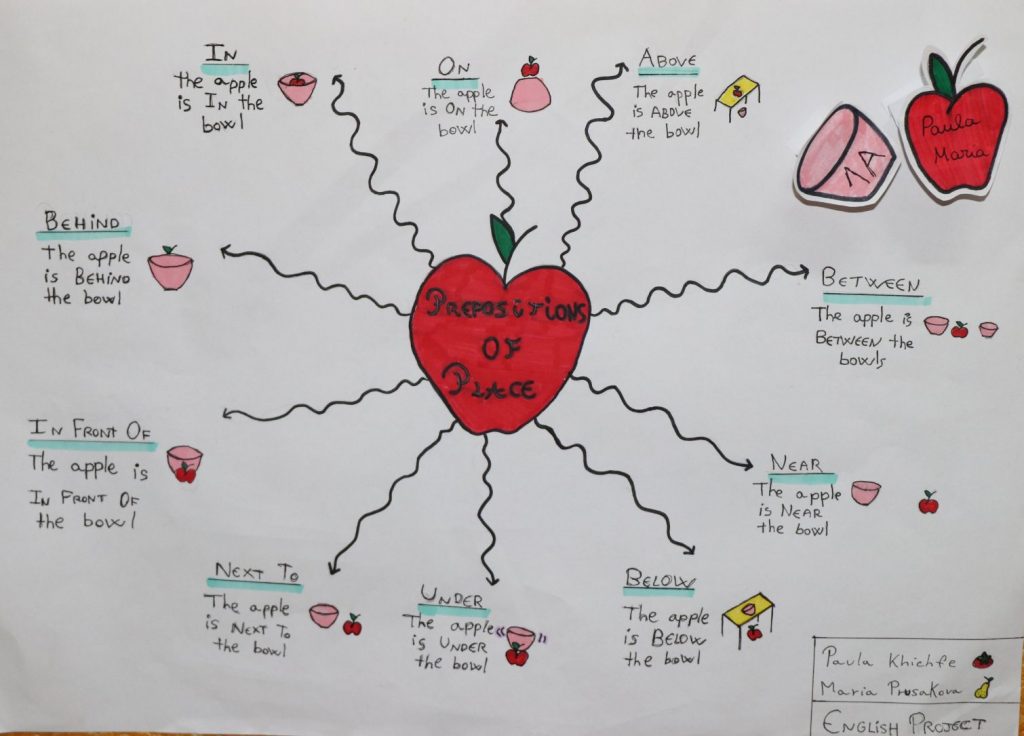 IN
the apple
is IN the
bowl
ON
The apple
is ON the
bowl
ABOVE
The apple
is ABOVE
the bowl
Paula
Maria
1A
BEHIND
The apple
is BEHIND
the bowl
PREPOSITIONS
OF
PLACE
BETWEEN
The apple is
BETWEEN the
bowls
IN FRONT OF
The apple is
IN FRONT OF
the bowl
NEAR
The apple
is NEAR
the bowl
NEXT TO
The apple
is NEXT TO
the bowl
UNDER
The apple
is UNDER
the bowl
BELOW
The apple
is BELOW
the bowl
Paula Khichfe
Maria Prusakova
ENGLISH PROJECT